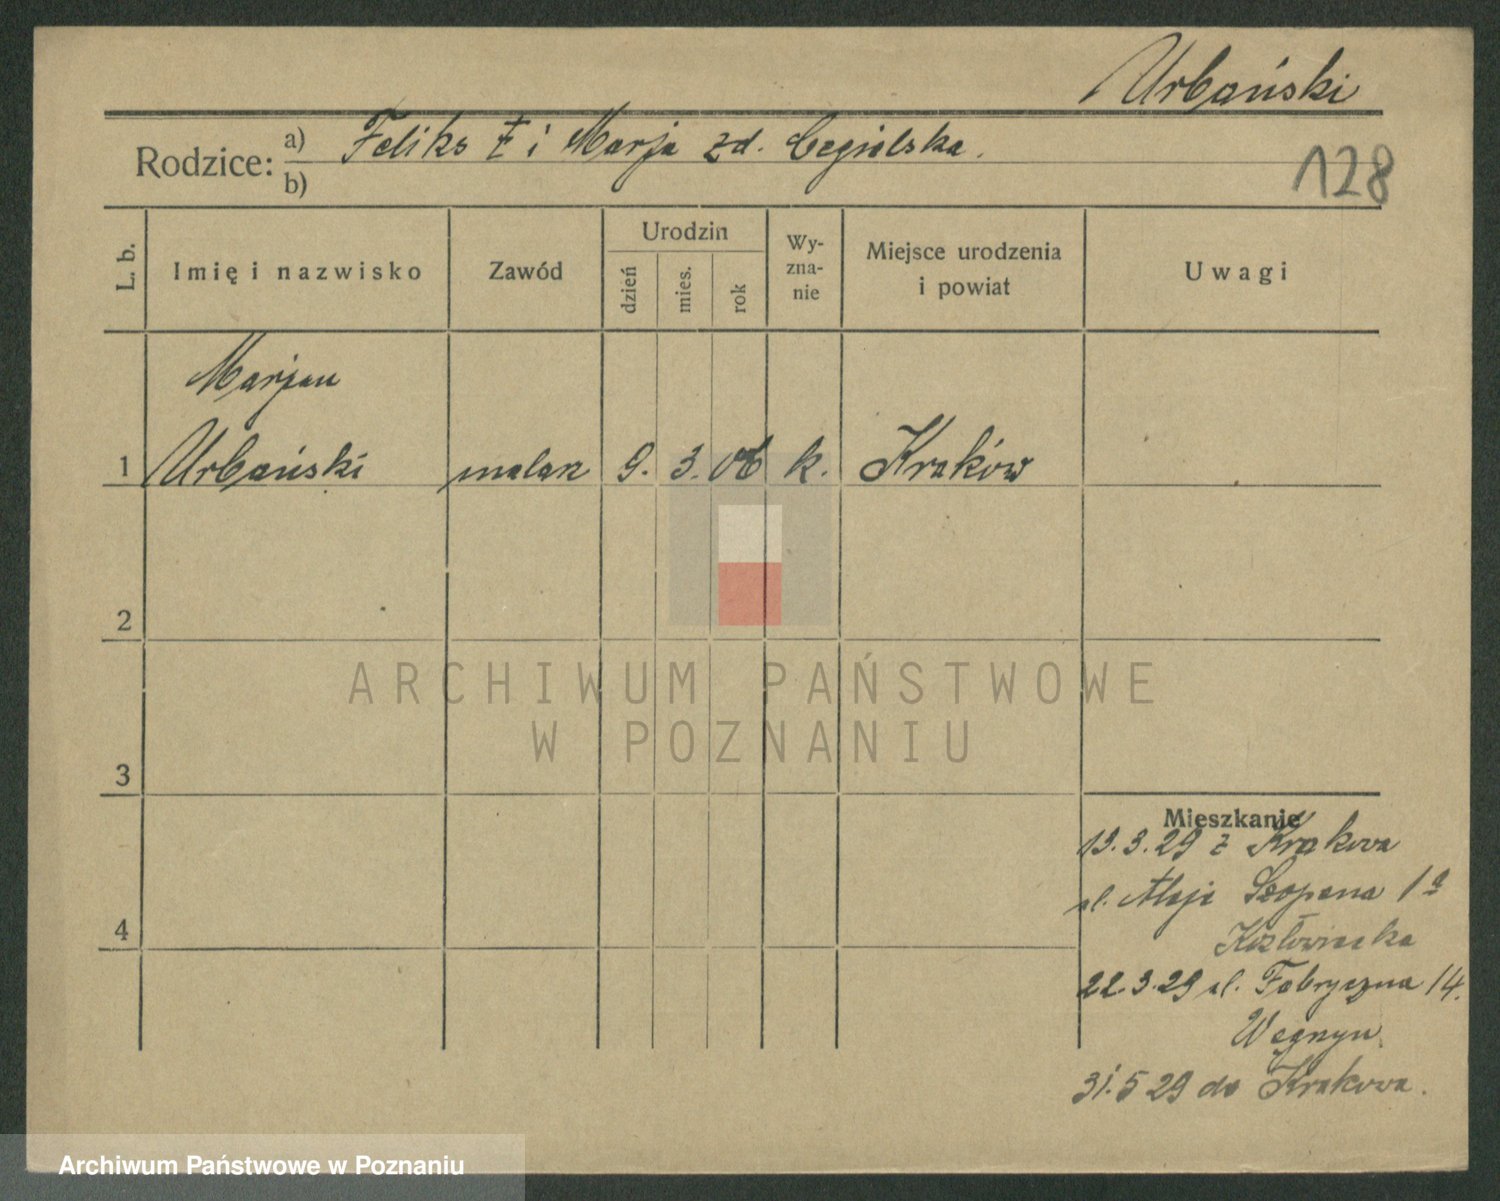 Urbański
Rodzice: a) Feliks Ł i Marja zd. Cegielska.
b)
128
L. b.
Imię i nazwisko
Zawód
Urodzin
dzień
mies.
rok
Wy-
zna-
nie
Miejsce urodzenia
i powiat
Uwagi
Marjan
1 Urbański malarz 9. 3. 06 k. Kraków
2
3
4
Mieszkanie
13.3.29 z Krakowa
ul. Aleje Szopena 1a
22.3.29 ul. Fabryczna 14.
31.5 29 do Krakowa.
ARCHIWUM PAŃSTWOWE
W POZNANIU
Archiwum Państwowe w Poznaniu